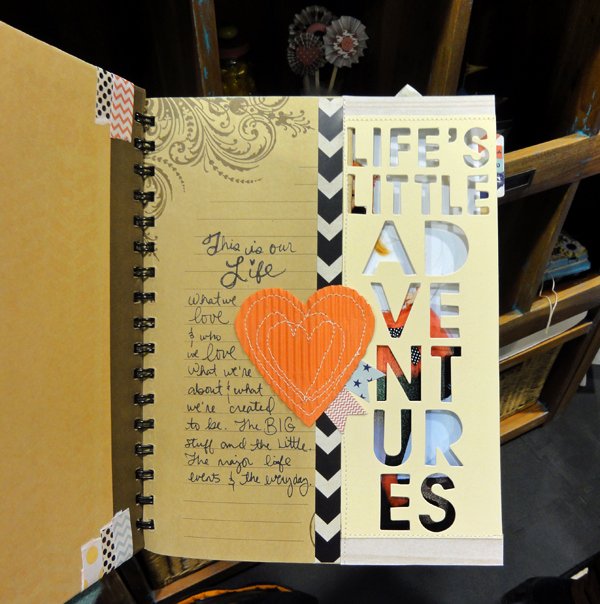 This is our
Life
What we
love
& who
we love
What we're
about & what
we're created
to be. The BIG
stuff and the little.
The major life
events & the everyday.
LIFE'S
LITTLE
AD
VE
NT
UR
ES